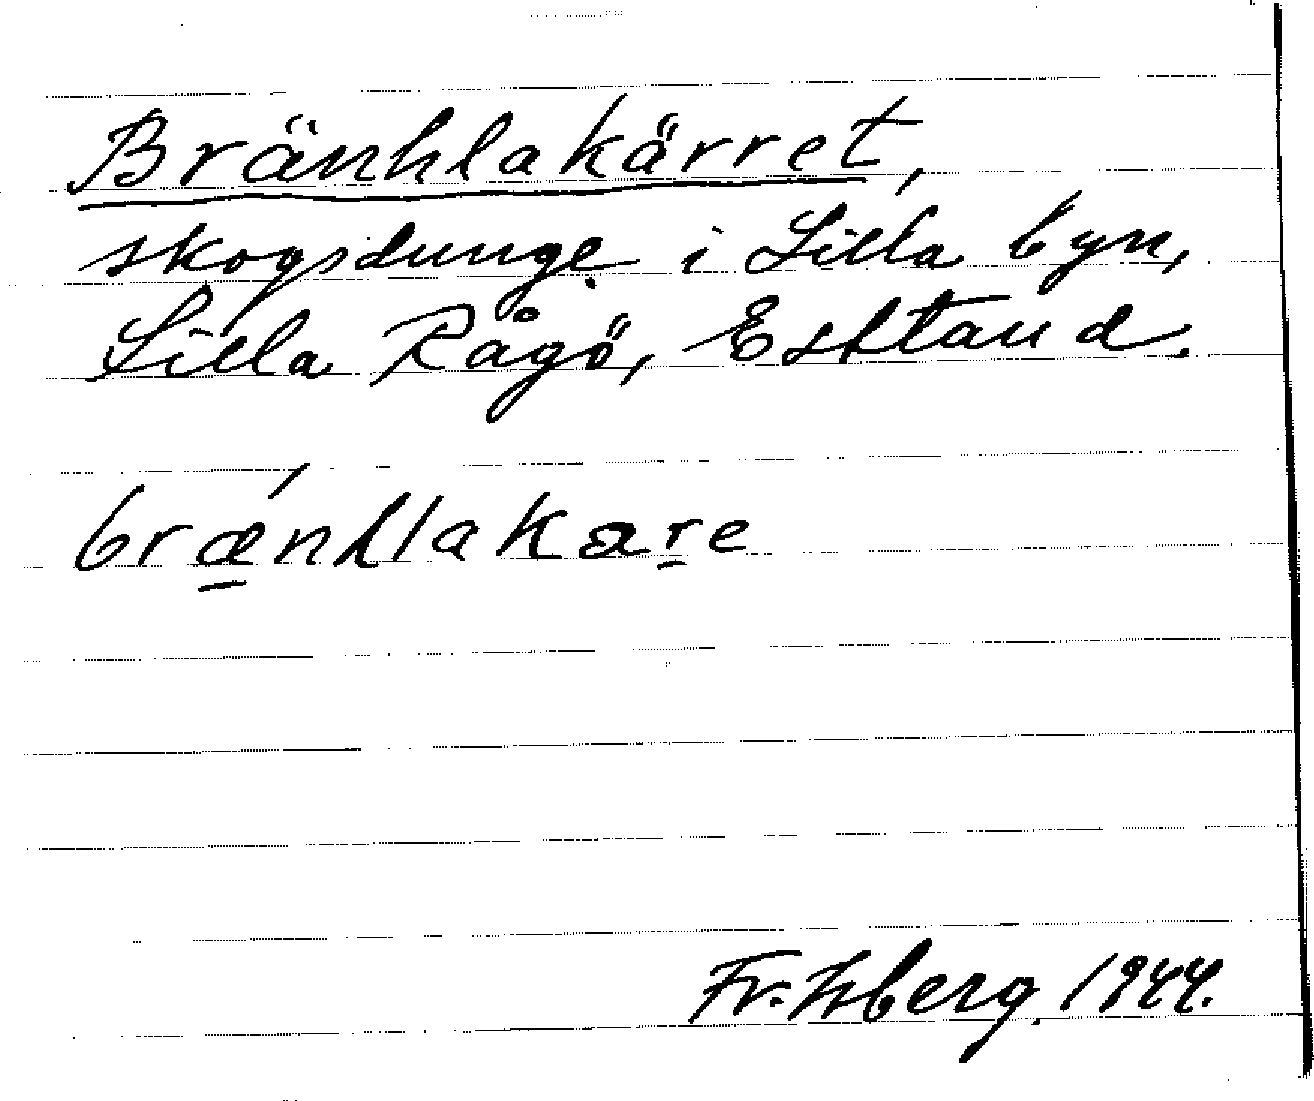 Bränhlakärret,
skogsdunge i Lilla byn,
Lilla Rågö, Estland.
brǽnhlakære
Fr. Hberg. 1944.